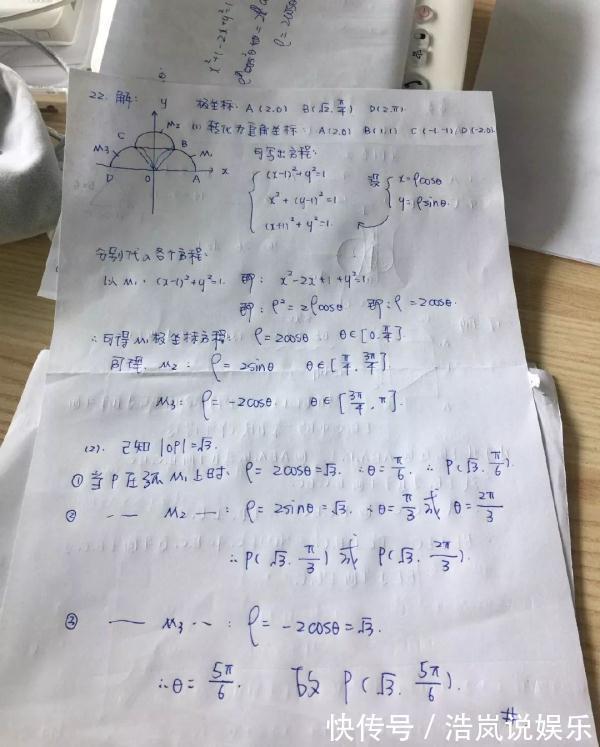 x²+1-2x+y²=1
ρ=2cosθ
22. 解: 极坐标: A(2,0) B(√2, π/4) D(2,π)
(1) 转化为直角坐标: A(2,0) B(1,1) C(-1,1) D(-2,0)
y
M2
C
B
M3
M1
D
O
A
x
可写出方程:
(x-1)²+y²=1
x²+(y-1)²=1
(x+1)²+y²=1.
x=ρcosθ
y=ρsinθ.
分别代入各个方程:
以M1: (x-1)²+y²=1. 即: x²-2x+1+y²=1.
即: ρ²=2ρcosθ 即: ρ=2cosθ.
∴可得M1极坐标方程: ρ=2cosθ θ∈[0, π/4].
同理, M2: ρ=2sinθ θ∈[π/4, 3π/4].
M3: ρ=-2cosθ. θ∈[3π/4, π].
(2). 已知|OP|=√3.
① 当P在弧M1上时: ρ=2cosθ=√3. ∴θ=π/6. ∴P(√3, π/6).
② — M2 —: ρ=2sinθ=√3. ∴θ=π/3 或 θ=2π/3
∴P(√3, π/3) 或 P(√3, 2π/3).
③ — M3 ··: ρ=-2cosθ=√3.
∴θ=5π/6. 故 P(√3, 5π/6).
#
快传号/浩岚说娱乐